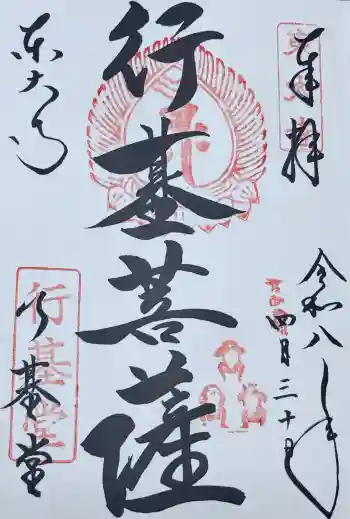 奉拝
令和八年
四月三十日
行基菩薩
東大寺
行基堂
行基堂